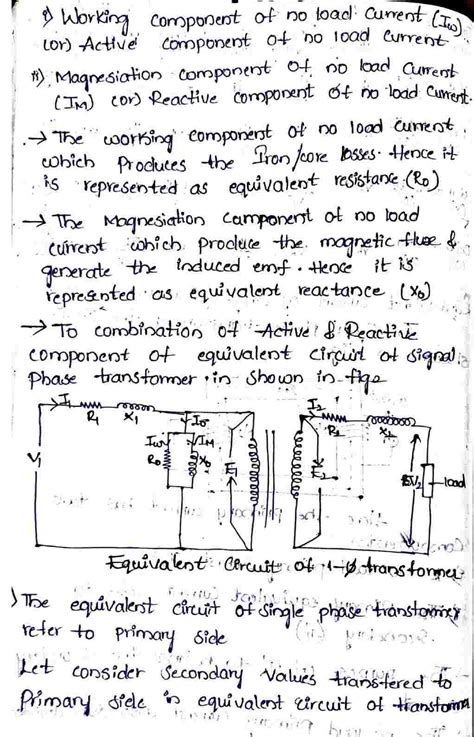 i) Working component of no load current (Iw)
(or) Active component of no load current
ii) Magnesiation component of no load current
(IM) (or) Reactive component of no load current.
→ The working component of no load current
which produces the Iron/core losses. Hence it
is represented as equivalent resistance (R0)
→ The Magnesiation component of no load
current which produce the magnetic fluxe &
generate the induced emf. Hence it is
represented as equivalent reactance (X0)
→ To combination of Active & Reactive
component of equivalent circuit of signal
phase transformer in shown in fig
I1 R1 X1 I0 Iw IM R0 X0 V1 E1
I2 R2 X2 E2 V2 load
Equivalent circuit of 1-ø transformer
The equivalent circuit of single phase transformer
refer to primary side
Let consider secondary values transfered to
Primary side in equivalent circuit of transforma